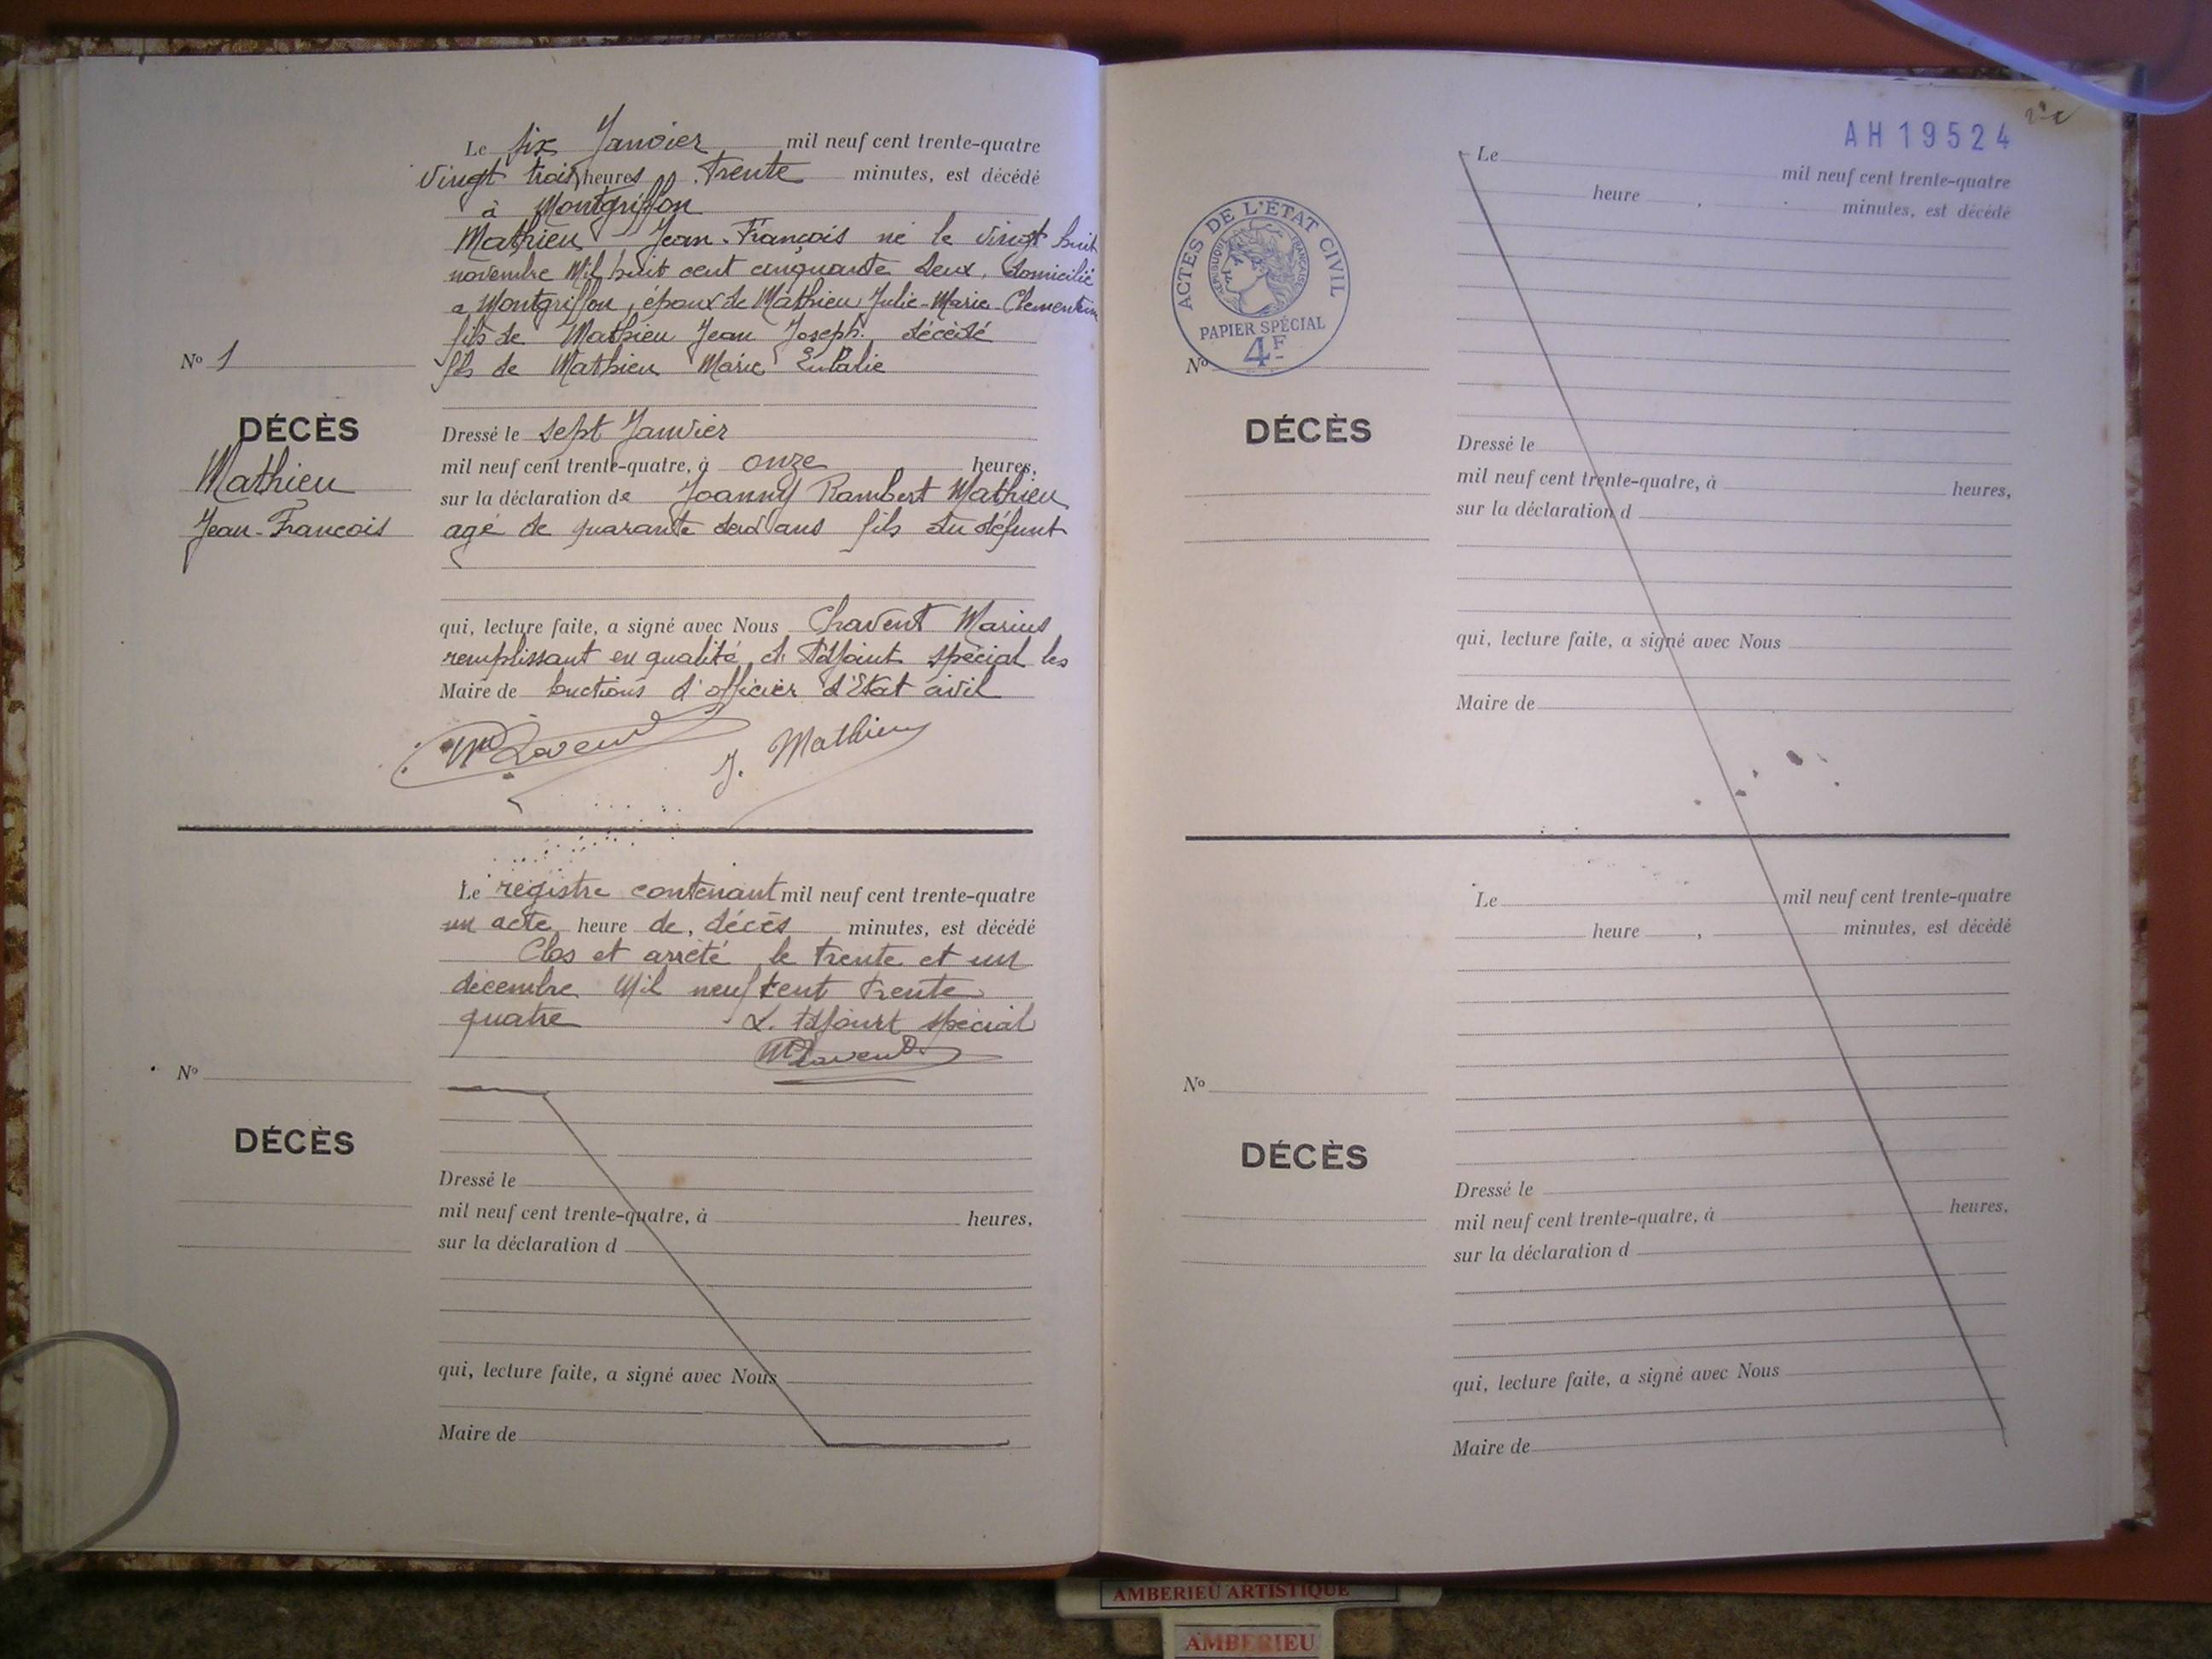 Le six Janvier mil neuf cent trente-quatre
Vingt trois heures, Trente minutes, est décédé
à Montgriffon
Mathieu Jean-François né le vingt huit
novembre Mil huit cent cinquante deux, domicilié
a Montgriffon, époux de Mathieu Julie-Marie-Clementine
fils de Mathieu Jean Joseph décédé
fils de Mathieu Marie Eulalie
No 1
DÉCÈS
Mathieu
Jean-François
Dressé le sept Janvier
mil neuf cent trente-quatre, à onze heures,
sur la déclaration de Joanny Rambert Mathieu
agé de quarante deux ans fils du défunt
qui, lecture faite, a signé avec Nous Chavent Marius
remplissant en qualité d'Adjoint spécial les
Maire de fonctions d'officier d'Etat civil
J. Mathieu
Le registre contenant mil neuf cent trente-quatre
un acte heure de, décès minutes, est décédé
Clos et arrêté le trente et un
décembre Mil neuf cent trente
quatre L. Adjoint spécial
No
DÉCÈS
Dressé le
mil neuf cent trente-quatre, à heures,
sur la déclaration d
qui, lecture faite, a signé avec Nous
Maire de
AH19524
Le mil neuf cent trente-quatre
heure , minutes, est décédé
ACTES DE L'ÉTAT CIVIL
RÉPUBLIQUE FRANÇAISE
PAPIER SPÉCIAL
4F
No
DÉCÈS
Dressé le
mil neuf cent trente-quatre, à heures,
sur la déclaration d
qui, lecture faite, a signé avec Nous
Maire de
Le mil neuf cent trente-quatre
heure , minutes, est décédé
No
DÉCÈS
Dressé le
mil neuf cent trente-quatre, à heures,
sur la déclaration d
qui, lecture faite, a signé avec Nous
Maire de
AMBERIEU ARTISTIQUE
AMBERIEU